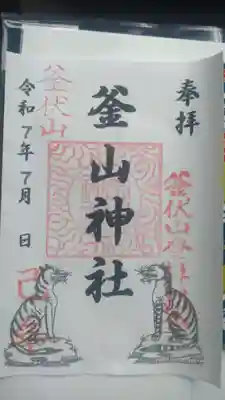 奉拝
釜伏山神社
釜山神社
釜伏山
令和7年7月 日
己